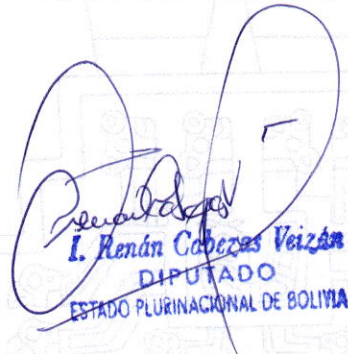 I. Renán Cabezas Veizán
DIPUTADO
ESTADO PLURINACIONAL DE BOLIVIA